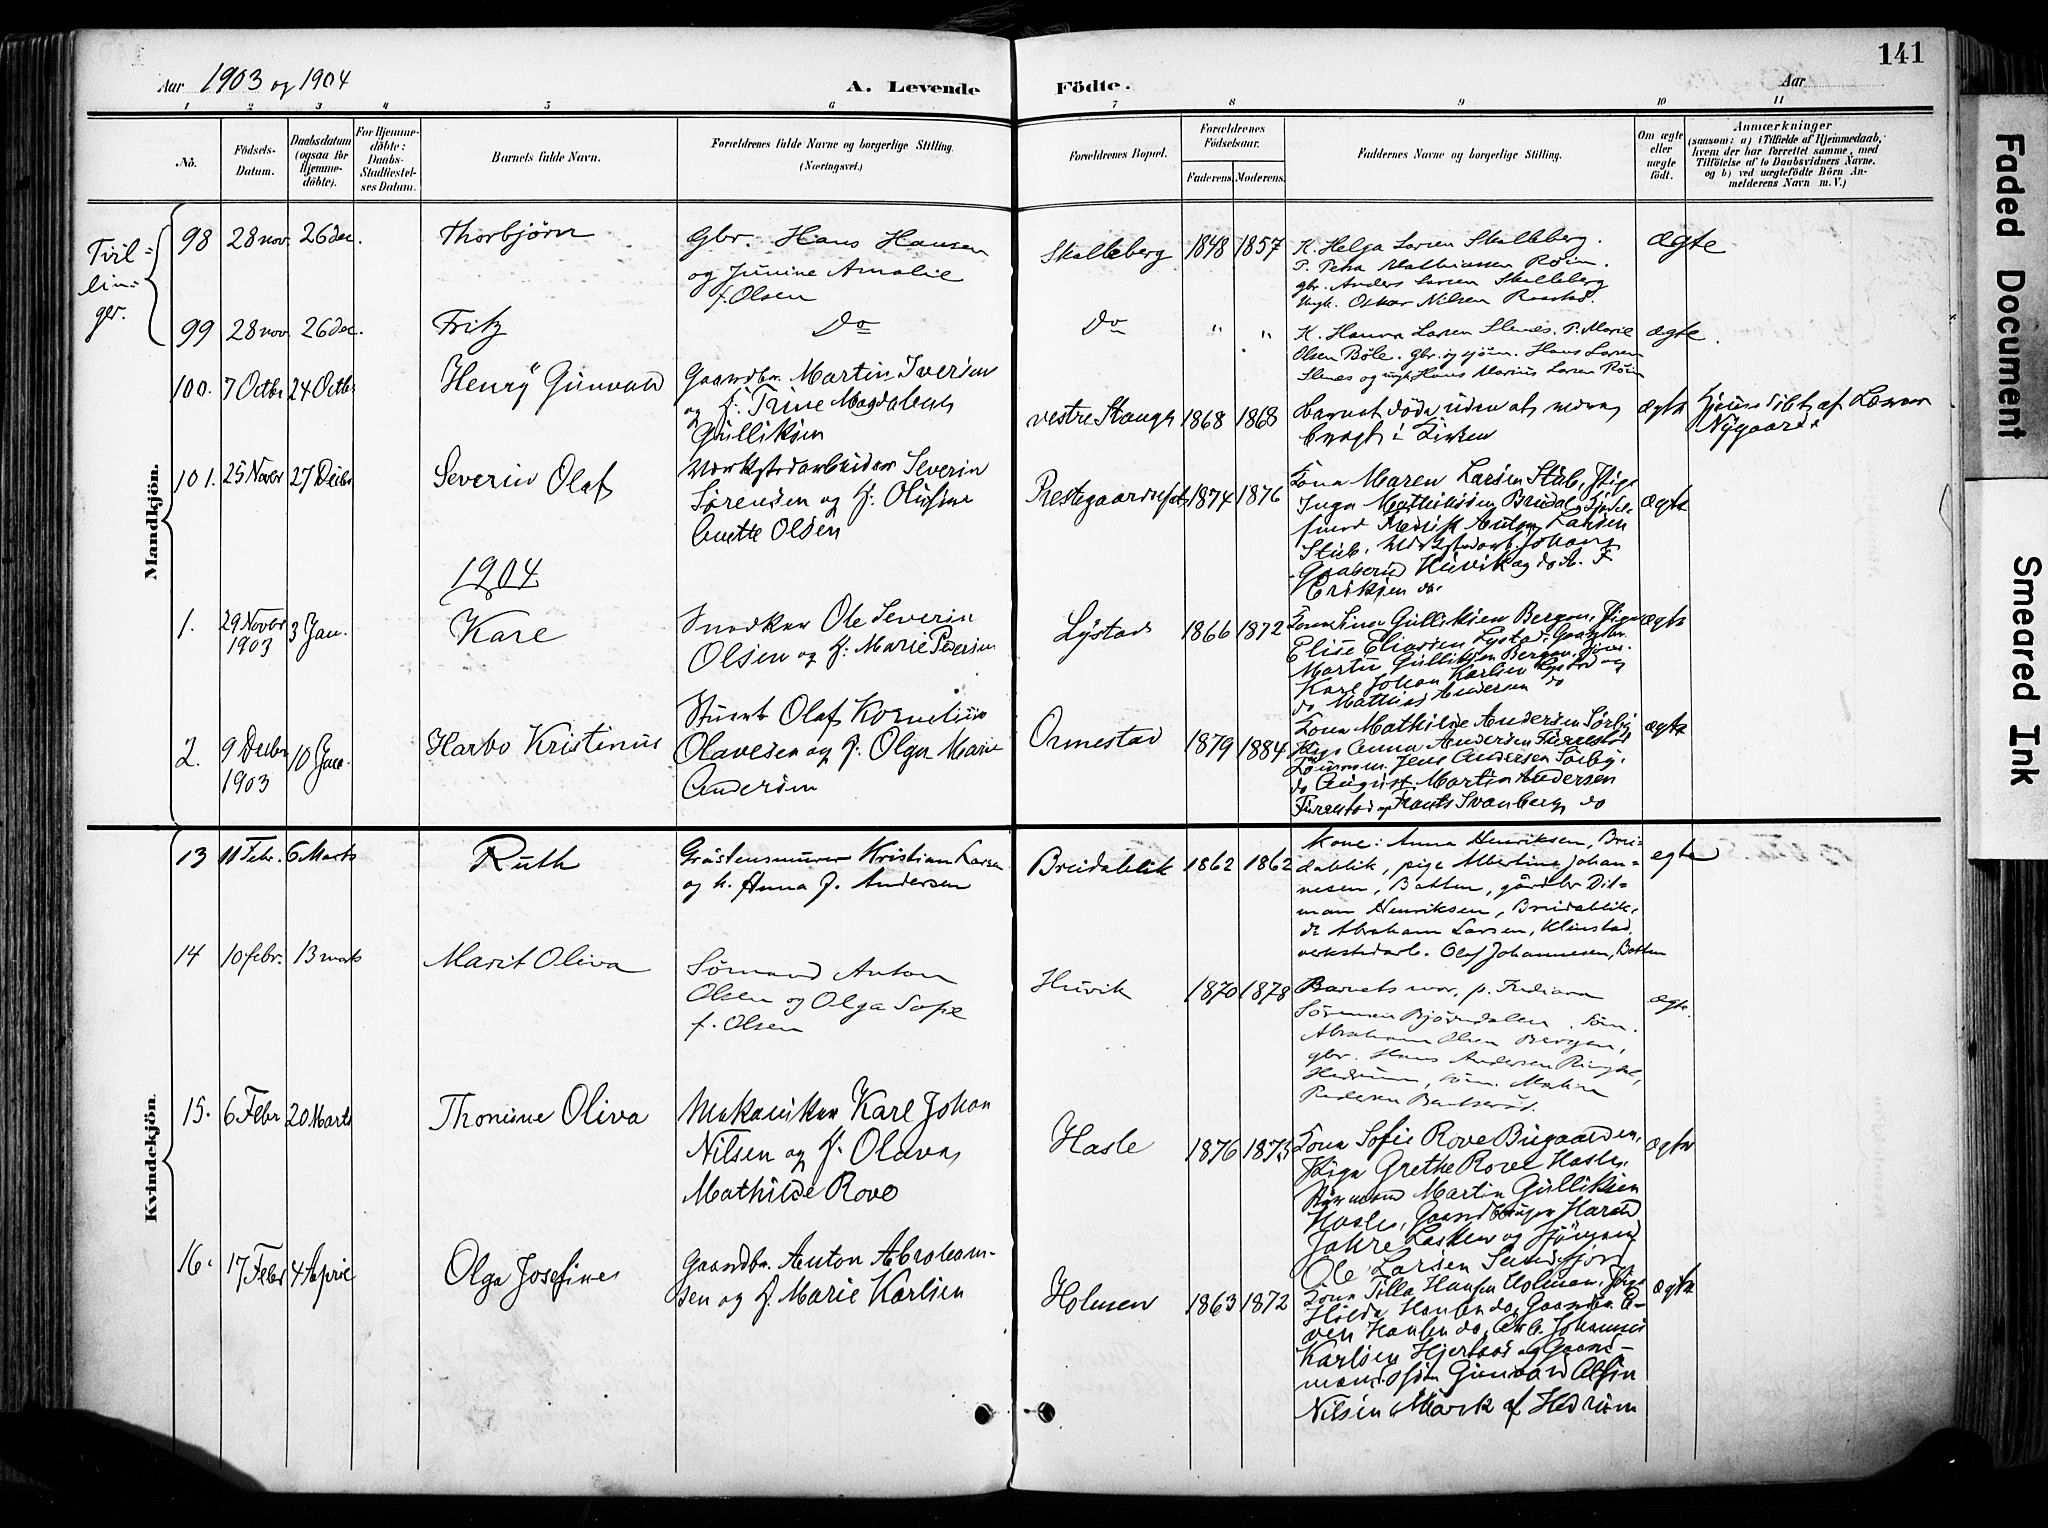 141
Aar 1903 og 1904
A. Levende
Födte.
Aar
1 2 3 4 5 6 7 8 9 10 11
No.
Födsels-
Datum.
Daabsdatum
(ogsaa for
Hjemme-
döbte).
For Hjemme-
döbte:
Daabs-
Stadfæstel-
ses Datum.
Barnets fulde Navn.
Forældrenes fulde Navne og borgerlige Stilling.
(Næringsvei.)
Forældrenes Bopæl.
Forældrenes
Födselsaar.
Faderens. Moderens.
Faddernes Navne og borgerlige Stilling.
Om ægte
eller
uægte
födt.
Anmærkninger
(saasom: a) i Tilfælde af Hjemmedaab,
hvem der har forrettet samme, med
Tilföielse af to Daabsvidners Navne.
og b) ved uægtefödte Börn An-
melderens Navn m. V.)
Mandkjön.
Tvil-
lin-
ger.
98 28 nov. 26 dec. Thorbjørn
Gbr. Hans Hansen
og Junine Amalie
f. Olsen
Skalleberg 1848 1857
K. Helga Larsen Skalleberg.
P. Petra Mathiassen Röim.
gbr. Anders Larsen Skalleberg
Ungk. Oskar Nilsen Raastad.
ægte
99 28 nov. 26 dec. Fritz
Do
Do " "
K. Hanna Larsen Slenes. P. Marie
Olsen Bøle. Gbr. og sjöm. Hans Larsen
Slenes og ungk Hans Marius Larsen Röim
ægte.
100. 7 Octbr 24 Octbr Henry Gunvald
Gaardbr. Martin Iversen
og f: Trine Magdalene
Gulliksen
vestre Stange 1868 1868
Barnet døde uden at være
bragt i Kirken
ægte
Hjemmedöbt af Lærer
Nygaard
101. 25 Novbr 27 Decbr Severin Olaf
Værkstedarbeider Severin
Sørensen og f: Olufine
Anette Olsen
Prestegaardspl. 1874 1876
Kona Maren Larsen Stub, Pige
Inga Mathilde Bredal, Sjö-
mand Fredrik Anton Larsen
Stub, Værkstedarb. Johan
Graaberg Huvik og do A. F
Eriksen do.
ægte
1904
1. 29 Novbr
1903 3 Jan. Kare
Snedker Ole Severin
Olsen og f: Marie Pedersen
Lystad 1866 1872
Kona Lina Gulliksen Bergan, Pige
Elise Eliassen Lystad, Gaardbr.
Martin Gulliksen Bergan,
Karl Johan Karlsen Lystad og
do Mathias Andersen do
ægte
2. 9 Decbr
1903 10 Jan. Harbo Kristinus
Stuert Olaf Kornelius
Olavesen og f: Olga Marie
Andersen
Ormestad 1879 1884
Kona Mathilde Andersen Sørby
Pige Anna Andersen Furrestad
Tömmerm. Jens Andersen Sörby,
do August Martin Andersen
Furrestad og Frants Svanberg do
ægte
Kvindekjön.
13 11 Febr. 6 Marts Ruth
Gråstensmurer Kristian Larsen
og h. Anna f. Andersen
Breidablik 1862 1862
Kone: Anna Henriksen, Brei-
dablik, pige Albertine Johan-
nesen, Batten, gårdbr Dit-
man Henriksen, Breidablik,
do Abraham Larsen, Klinstad,
verkstedarb. Olaf Johannesen, Batten
egte
14 10 febr. 13 marts Marit Oliva
Sömand Anton
Olsen og Olga Sofie
f. Olsen
Huvik 1870 1878
Barnets mor, p. Frediana
Sørensen Bjørndalen. Söm.
Abraham Olsen Bergan,
gbr. Hans Andersen Ringdal,
Hedrum, söm. Martin
Pedersen
ægte.
15. 6 Febr 20 Marts Thomine Oliva
Mekaniker Karl Johan
Nilsen og f: Olava
Mathilde Rove
Hasle 1876 1873
Kona Sofie Rove Bugaarden,
Pige Grethe Rove Hasle,
Styrmand Martin Gulliksen
Hasle, Gaardbruger Harald
Jahre Lasken og Sjömand
Ole Larsen Sundsfjord
ægte
16. 17 Febr 4 April Olga Josefine
Gaardbr. Anton Abraham-
sen og f. Marie Karlsen
Holmen 1863 1872
Kona Tilla Hansen Holmen, Pige
Hilda Hansen do, Gaardbr. E-
ven Hansen do, Arb. Johannes
Karlsen Hjertaas og Gaard-
mandssøn Gunvald Alfin
Nilsen Mörk af Hedrum
ægte
Faded Document
Smeared Ink